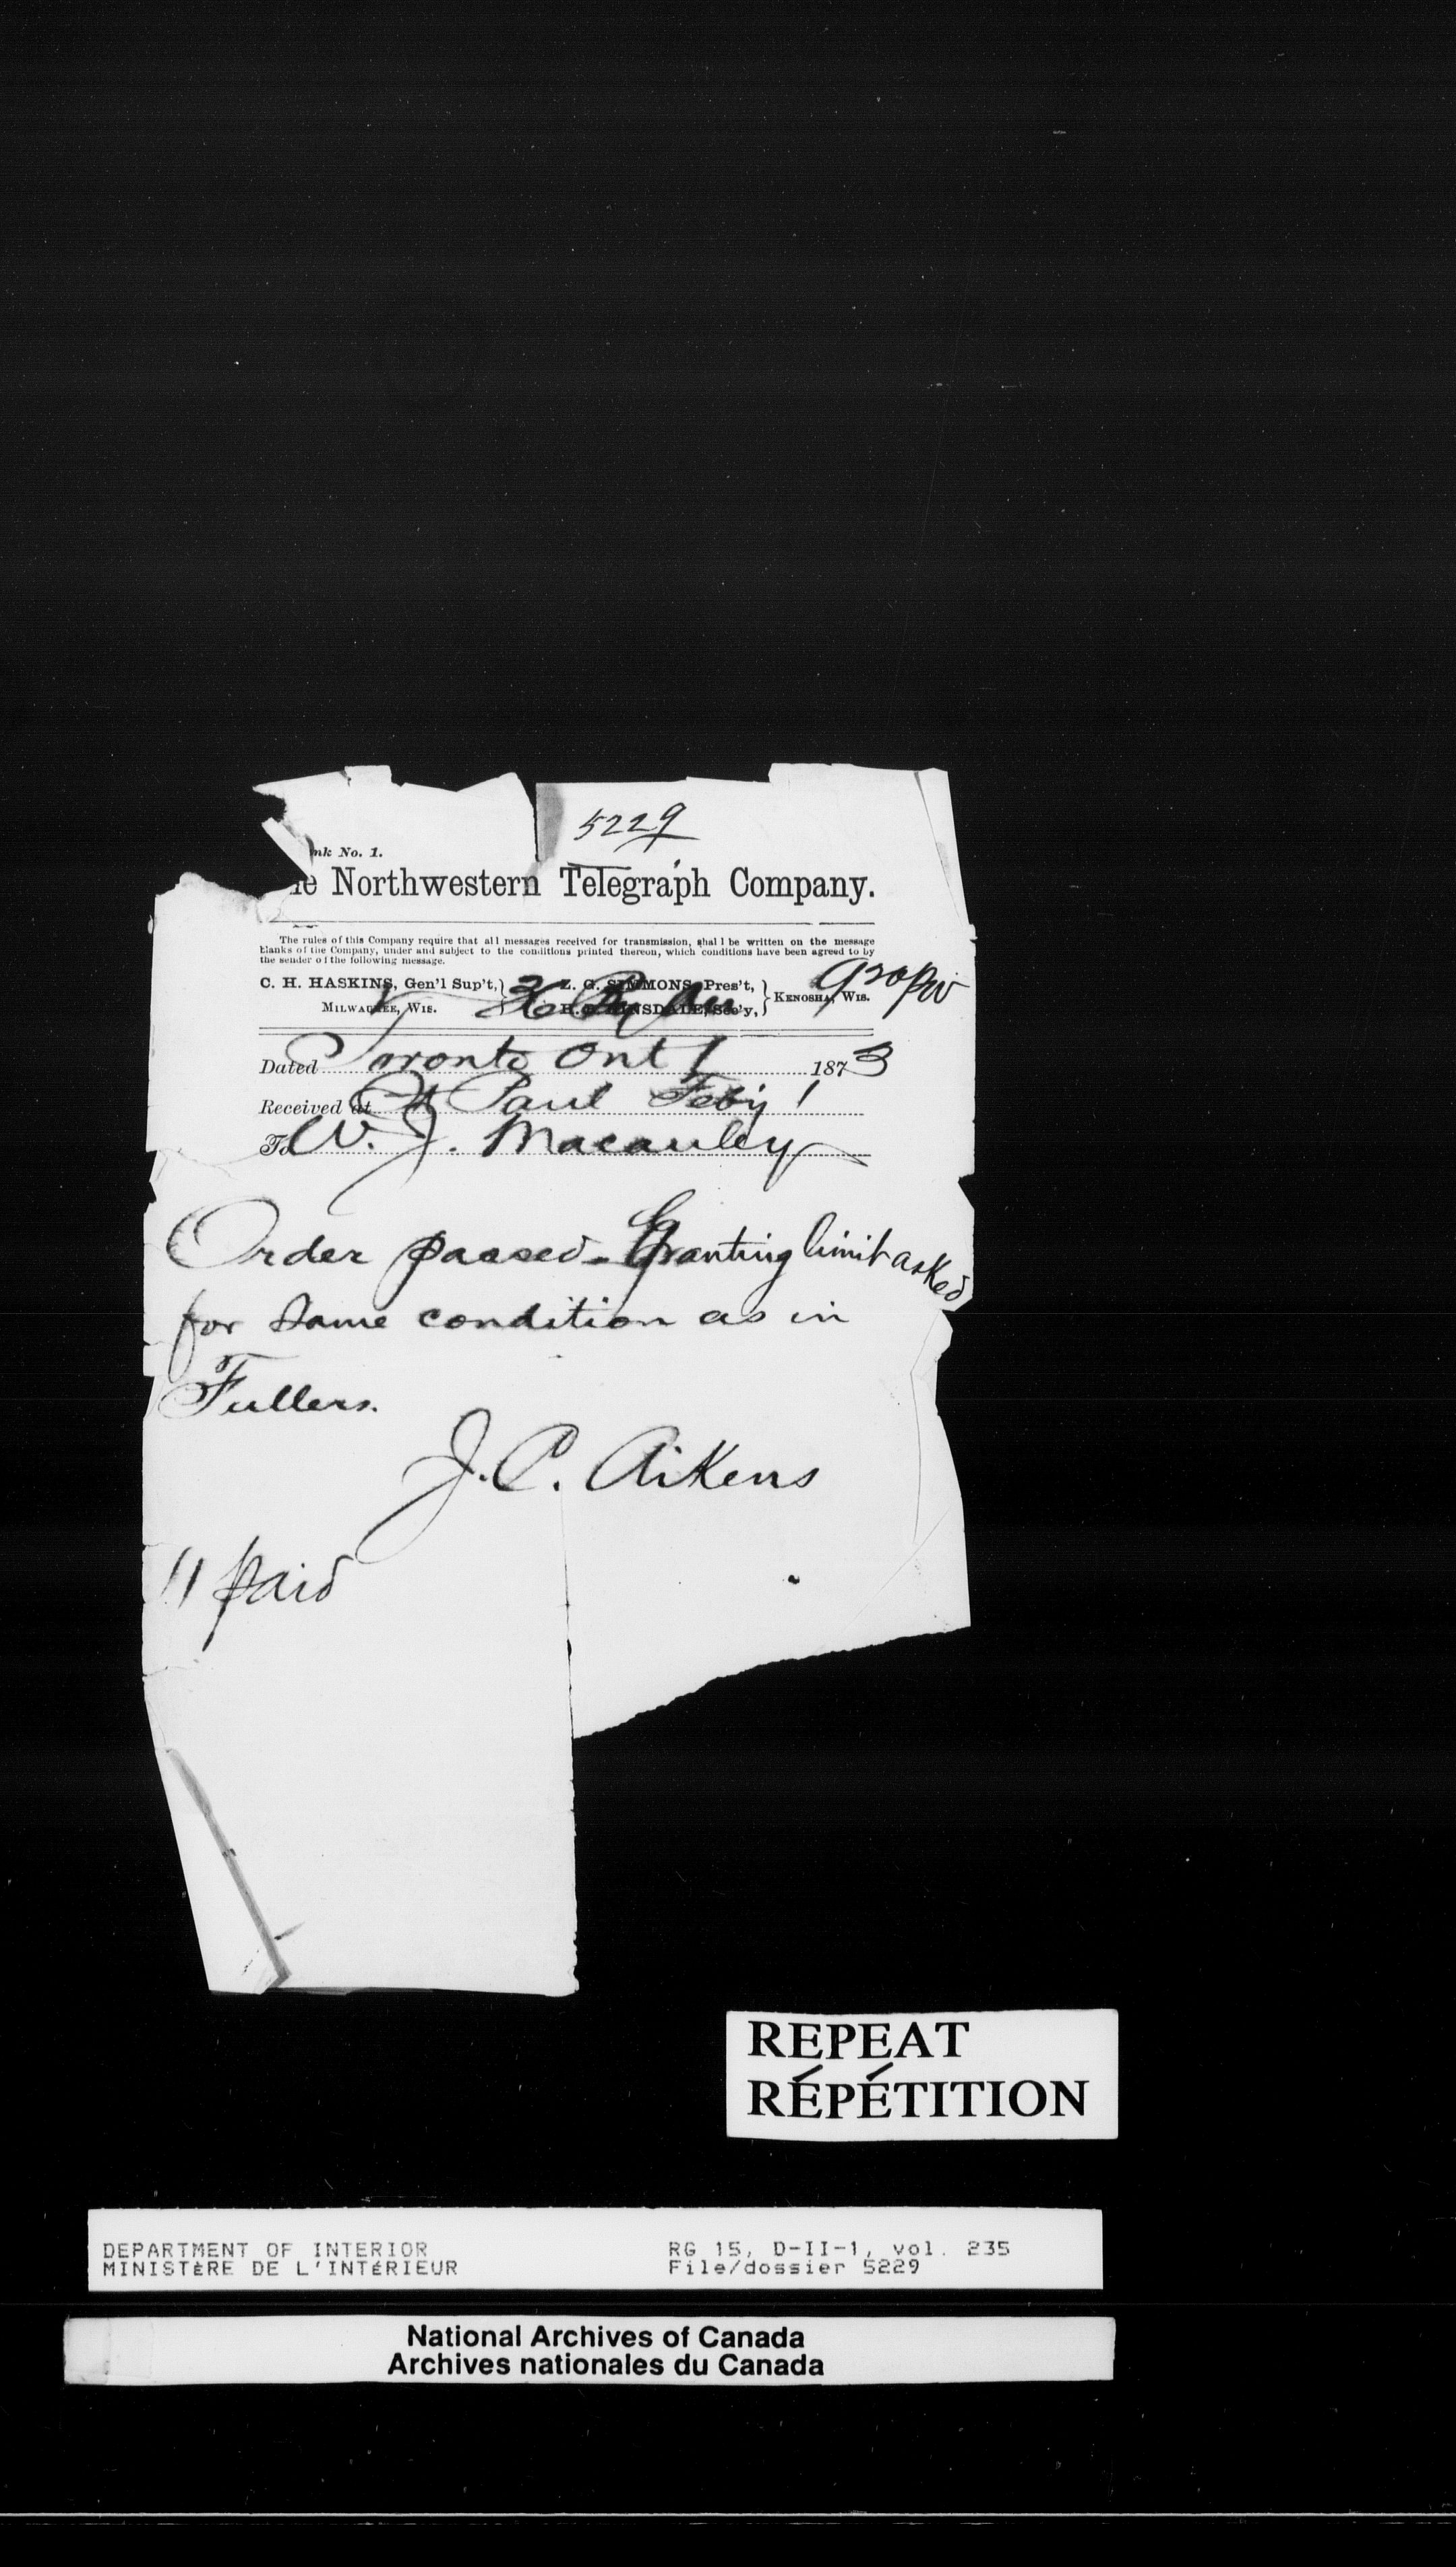 5229
nk No. 1.
he Northwestern Telegraph Company.
The rules of this Company require that all messages received for transmission, shall be written on the message
blanks of the Company, under and subject to the conditions printed thereon, which conditions have been agreed to by
the sender of the following message.
C. H. HASKINS, Gen'l Sup't, Z. G. SIMMONS, Pres't,
MILWAUKEE, WIS. HINSDALE, Sec'y, KENOSHA, WIS.
Dated Toronto Ont 1 1873
Received at St Paul Feby 1
To W. J. Macauley
Order passed - Granting limit asked
for same condition as in
Fullers.
J. C. Aikens
11 paid
REPEAT
RÉPÉTITION
DEPARTMENT OF INTERIOR RG 15, D-II-1, vol. 235
MINISTÈRE DE L'INTÉRIEUR File/dossier 5229
National Archives of Canada
Archives nationales du Canada